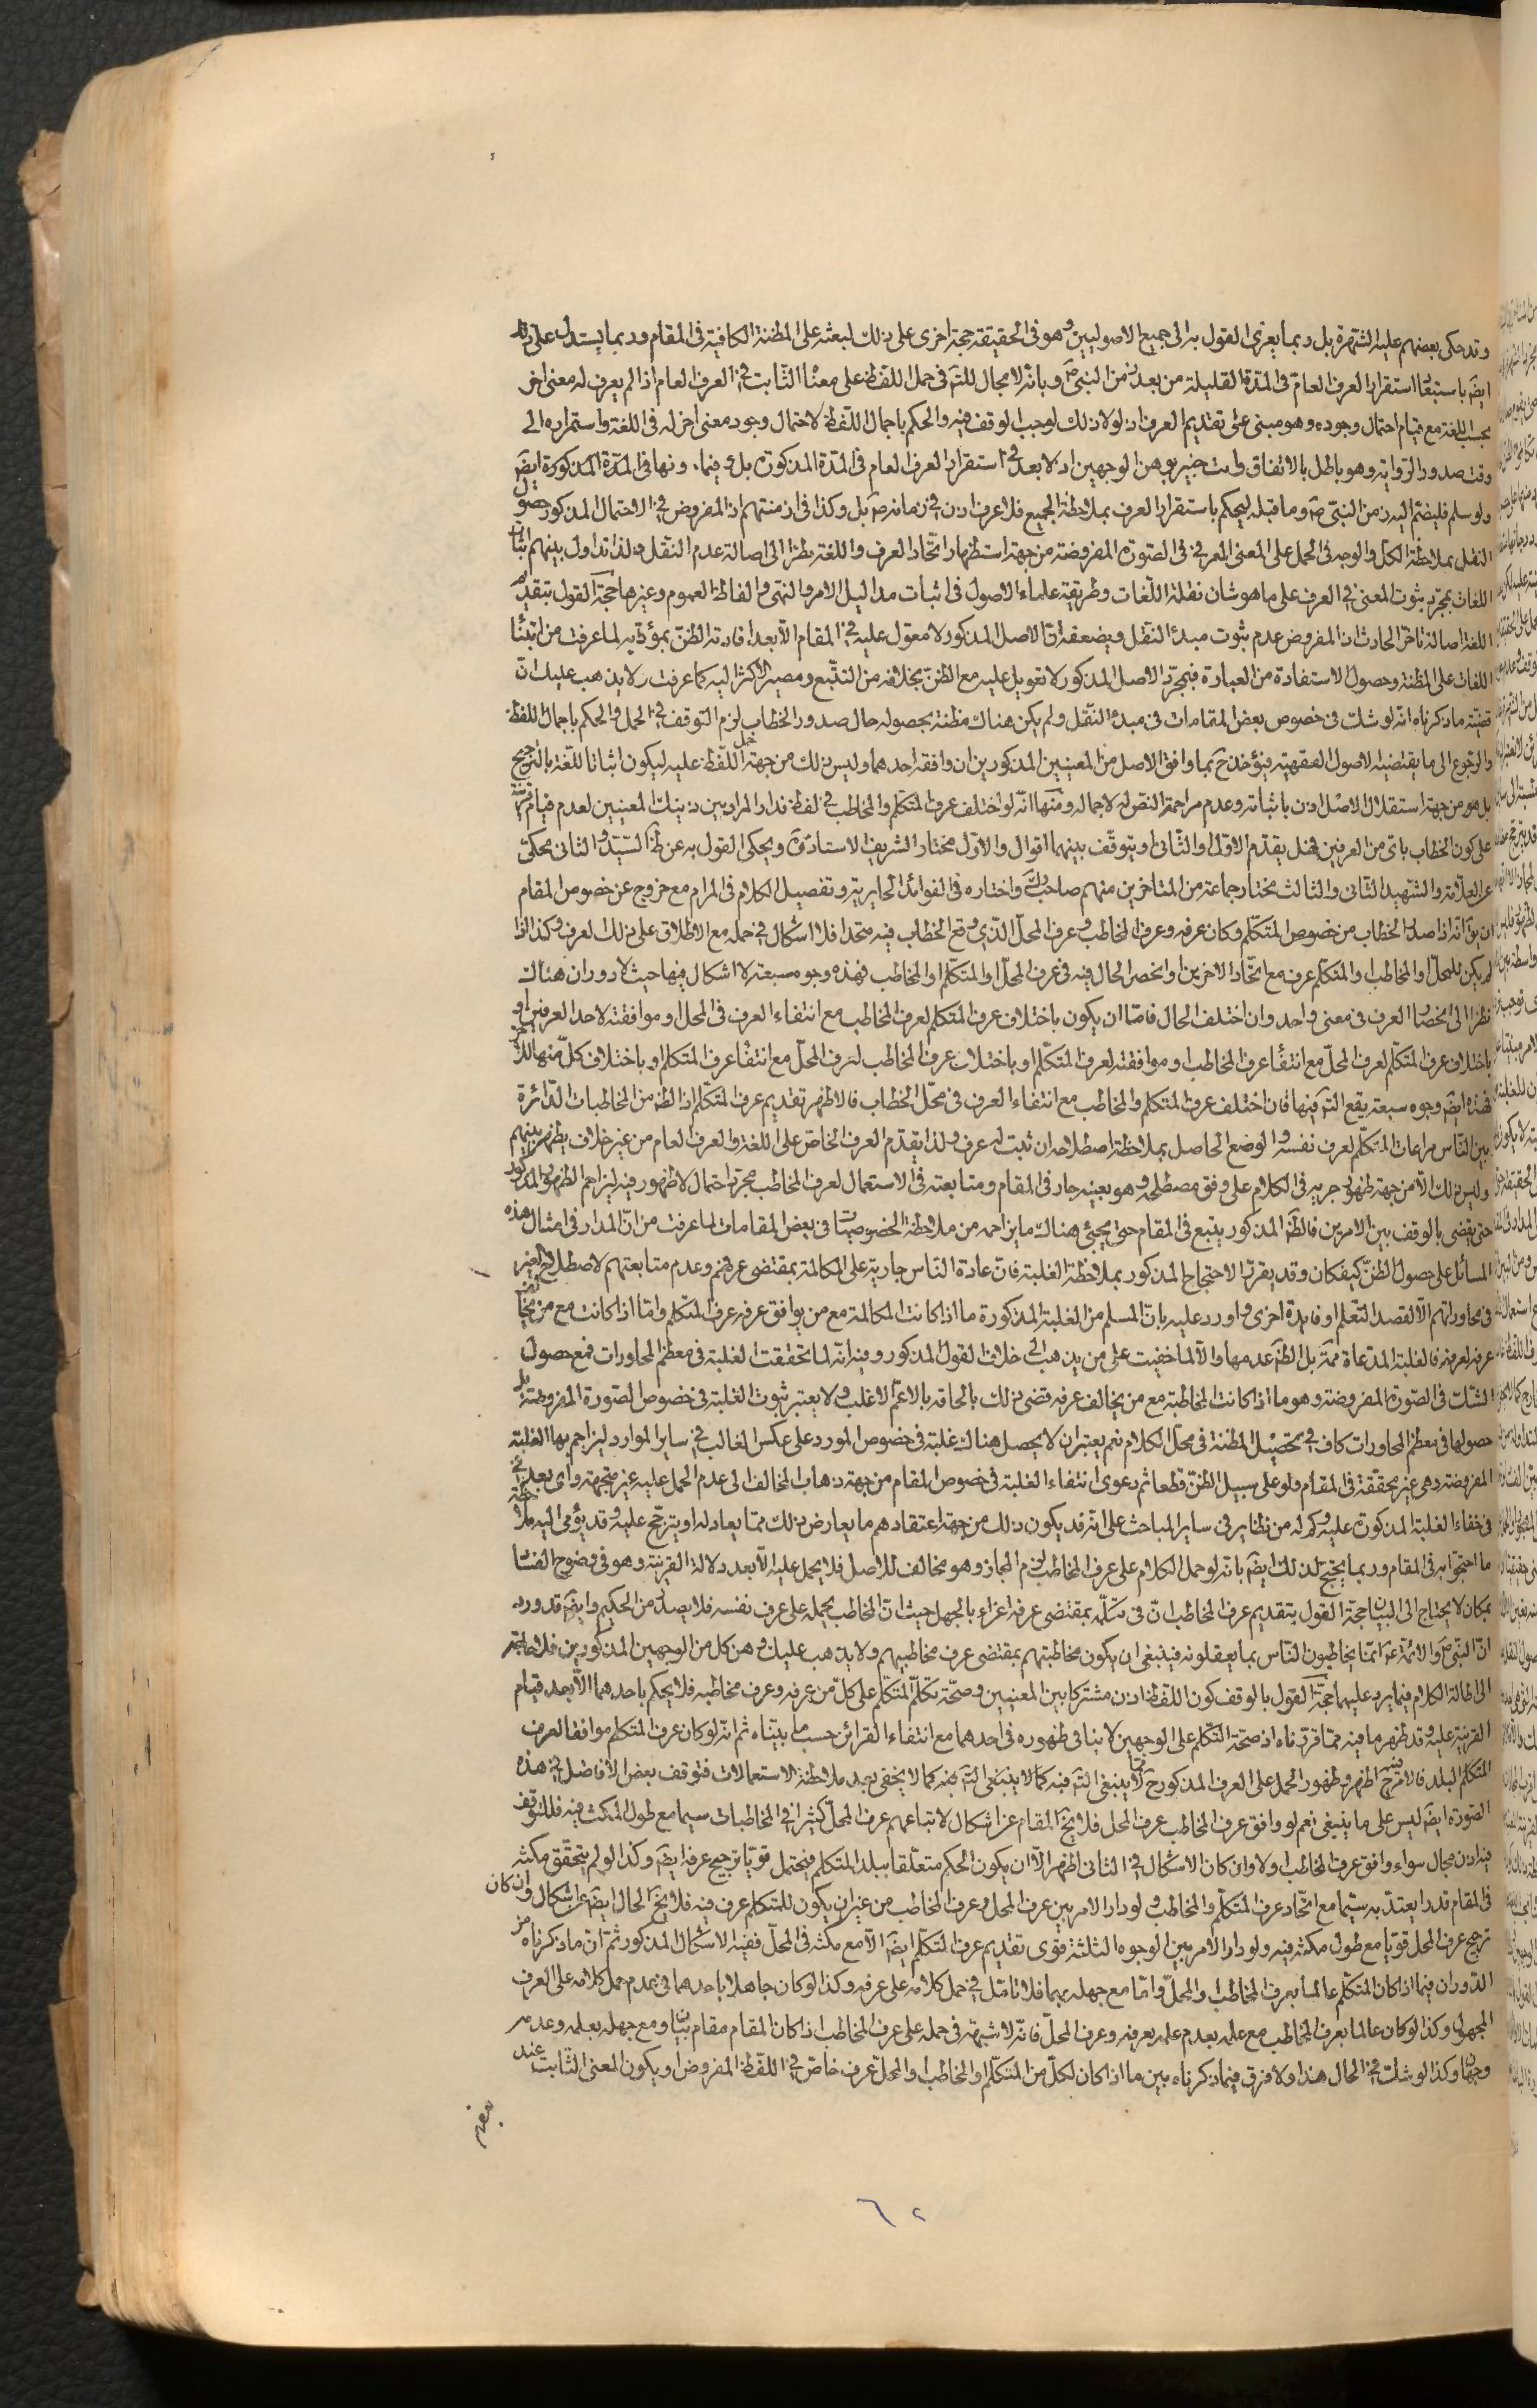 وقد حكى بعضهم عليه الشهرة بل ربما يعزى القول به الى جميع الاصوليين وهو فى الحقيقة حجة اخرى على ذلك لبعثه على المظنة الكافية فى المقام وربما يستدل على ذلك
ايضا باستبعاد استقرار العرف العام فى المدة القليلة من بعد زمن النبى ص وبانه لا مجال للتامل فى حمل اللفظ على معناه الثابت فى العرف العام اذا لم يعرف له معنى اخر
بحسب اللغة مع قيام احتمال وجوده وهو مبنى على تقديم العرف اذ لولا ذلك لوجب الوقف فيه والحكم باجمال اللفظ لاحتمال وجود معنى اخر له فى اللغة واستمراره الى
وقت صدور الرواية وهو باطل بالاتفاق وانت خبير بوهن الوجهين اذ لا بعد فى استقرار العرف العام فى المدة المذكورة بل فيما دونها فى المدة المذكورة ايضا
ولو سلم فليضم اليه زمن النبى ص وما قبله ليحكم باستقرار العرف بملاحظة الجميع فلا عرف اذن فى زمانه ص بل وكذا فى ازمنتهم اذ المفروض فى الاحتمال المذكور حصول
النقل بملاحظة الكل والوجه فى الحمل على المعنى العرفى فى الصورة المفروضة من جهة استظهار اتحاد العرف واللغة نظرا الى اصالة عدم النقل ولذا تداول بينهم اثبات
اللغات بمجرد ثبوت المعنى فى العرف على ما هو شان نقلة اللغات وطريقة علماء الاصول فى اثبات مداليل الامر والنهى والفاظ العموم وغيرها حجة القول بتقديم
اللغة اصالة تاخر الحادث اذ المفروض عدم ثبوت مبدء النقل ويضعفه ان الاصل المذكور لا معول عليه فى المقام الا بعد افادته الظن بمؤداه لما عرفت من ابتناء
اللغات على المظنة وحصول الاستفادة من العبارة فبمجرد الاصل المذكور لا تعويل عليه مع الظن بخلافه من التتبع ومصير الاكثر اليه كما عرفت ولا يذهب عليك ان
قضية ما ذكرناه انه لو شك فى خصوص بعض المقامات فى مبدء النقل ولم يكن هناك مظنة بحصوله حال صدور الخطاب لزم التوقف فى الحمل والحكم باجمال اللفظ
والرجوع الى ما يقتضيه الاصول الفقهية فيؤخذ ح بما وافق الاصل من المعنيين المذكورين ان وافقه احدهما وليس ذلك من جهة حمل اللفظ عليه ليكون اثباتا للغة بالترجيح
بل هو من جهة استقلال الاصل اذن باثباته وعدم مزاحمة النص له لاجماله ومنها انه لو اختلف عرف المتكلم والمخاطب فى لفظ فدار المراد بين ذينك المعنيين لعدم قيام قرينة
على كون الخطاب باى من العرفين فهل يقدم الاول او الثانى او يتوقف بينهما اقوال والاول مختار الشريف الاستاد قده ويحكى القول به عن ظاهر السيد والثانى محكى
عن العلامة والشهيد الثانى والثالث مختار جماعة من المتاخرين منهم صاحب واختاره فى الفوائد الحايرية وتفصيل الكلام فى المرام مع خروج عن خصوص المقام
ان يقال انه اذا صدر الخطاب من خصوص المتكلم وكان عرفه وعرف المخاطب وعرف المحل الذى وقع الخطاب فيه متحدا فلا اشكال فى حمله مع الاطلاق على ذلك العرف وكذا اذا
لم يكن للمحل او المخاطب او المتكلم عرف مع اتحاد الاخرين او انحصر الحال فيه فى عرف المحل او المتكلم او المخاطب فهذه وجوه سبعة لا اشكال فيها حيث لا دوران هناك
نظرا الى انحصار العرف فى معنى واحد وان اختلف الحال فاما ان يكون باختلاف عرف المتكلم لعرف المخاطب مع انتفاء العرف فى المحل او موافقته لاحد العرفين او
باختلاف عرف المتكلم لعرف المحل مع انتفاء عرف المخاطب او موافقته لعرف المتكلم او باختلاف عرف المخاطب لعرف المحل مع انتفاء عرف المتكلم او باختلاف كل منها للاخر
فهذه ايضا وجوه سبعة يقع التامل فيها فان اختلف عرف المتكلم والمخاطب مع انتفاء العرف فى محل الخطاب فالاظهر تقديم عرف المتكلم اذ الظاهر من المخاطبات الدائرة
بين الناس مراعات المتكلم لعرف نفسه والوضع الحاصل بملاحظة اصطلاحه ان ثبت له عرف ولذا يقدم العرف الخاص على اللغة والعرف العام من غير خلاف يظهر بينهم
وليس ذلك الا من جهة ظهور جريه فى الكلام على وفق مصطلحه وهو بعينه جار فى المقام ومتابعته فى الاستعمال لعرف المخاطب مجرد احتمال لا ظهور فيه ليزاحم الظهور المذكور
حتى يقضى بالوقف بين الامرين فالظاهر المذكور يتبع فى المقام حتى يجيئ هناك ما يزاحمه من ملاحظة الخصوصيات فى بعض المقامات لما عرفت من ان المدار فى امثال هذه
المسائل على حصول الظن كيف كان وقد يقرر الاحتجاج المذكور بملاحظة الغلبة فان عادة الناس جارية على المكالمة بمقتضى عرفهم وعدم متابعتهم لاصطلاح الغير
فى محاوراتهم الا لقصد التعلم او فايدة اخرى واورد عليه بان المسلم من الغلبة المذكورة ما اذا كانت المكالمة مع من يوافق عرفه عرف المتكلم واما اذا كانت مع من يخالف
عرفه لعرفه فالغلبة المدعاة ممنوعة بل الظاهر عدمها والا لما خفيت على من يذهب الى خلاف القول المذكور وفيه انه لما تحققت الغلبة فى معظم المحاورات فمع حصول
الشك فى الصورة المفروضة وهو ما اذا كانت المخاطبة مع من يخالف عرفه قضى ذلك بالحاقه بالاعم الاغلب ولا يعتبر ثبوت الغلبة فى خصوص الصورة المفروضة بل
حصولها فى معظم المحاورات كاف فى تحصيل المظنة فى محل الكلام نعم يعتبر ان لا يحصل هناك غلبة فى خصوص المورد على عكس الغالب فى ساير الموارد ليزاحم بها الغلبة
المفروضة وهى غير محققة فى المقام ولو على سبيل الظن قطعا ثم دعوى انتفاء الغلبة فى خصوص المقام من جهة ذهاب المخالف الى عدم الحمل عليه غير متجهة واى بعد فى
فى خفاء الغلبة المذكورة عليه وكم له من نظاير فى ساير المباحث على انه قد يكون ذلك من جهة اعتقادهم ما يعارض ذلك مما يعادله او يترجح عليه وقد يؤمى اليه ملاحظة
ما احتجوا به فى المقام وربما يحتج لذلك ايضا بانه لو حمل الكلام على عرف المخاطب لزم المجاز وهو مخالف للاصل فلا يحمل عليه الا بعد دلالة القرينة وهو فى وضوح الفساد
بمكان لا يحتاج الى البيان حجة القول بتقديم عرف المخاطب ان فى تكلمه بمقتضى عرفه اغراء بالجهل حيث ان المخاطب يحمله على عرف نفسه فلا يصدر من الحكيم وايضا قد ورد
ان النبى ص والائمة ع انما يخاطبون الناس بما يعقلونه فينبغى ان يكون مخاطبتهم بمقتضى عرف مخاطبيهم ولا يذهب عليك وهن كل من الوجهين المذكورين فلا حاجة
الى اطالة الكلام فيما يرد عليهما حجة القول بالوقف كون اللفظ اذن مشتركا بين المعنيين وصحة تكلم المتكلم على كل من عرفه وعرف مخاطبه فلا يحكم باحدهما الا بعد قيام
القرينة عليه وقد ظهر ما فيه مما قررناه اذ صحة التكلم على الوجهين لا ينافى ظهوره فى احدهما مع انتفاء القرائن حسب ما بيناه ثم انه لو كان عرف المتكلم موافقا لعرف
المتكلم البلد فالامر فيه ح اظهر وظهور الحمل على العرف المذكور ح مما لا ينبغى التامل فيه كما لا يخفى بعد ملاحظة الاستعمالات فتوقف بعض الافاضل فى هذه
الصورة ايضا ليس على ما ينبغى نعم لو وافق عرف المخاطب عرف المحل فلا يخ المقام عن اشكال لاتباعهم عرف المحل كثيرا فى المخاطبات سيما مع طول المكث فيه فللتوقف
فيه اذن مجال سواء وافق عرف المخاطب اولا وان كان الاشكال فى الثانى اظهر الا ان يكون الحكم متعلقا ببلد المتكلم فيحتمل قويا ترجيح عرفه ايضا وكذا لو لم يتحقق مكثه
فى المقام قدرا يعتد به سيما مع اتحاد عرف المتكلم والمخاطب ولو دار الامر بين عرف المحل وعرف المخاطب من غير ان يكون للمتكلم عرف فيه فلا يخ الحال ايضا عن اشكال وان كان
ترجيح عرف المحل قويا مع طول مكثه فيه ولو دار الامر بين الوجوه الثلثة قوى تقديم عرف المتكلم ايضا الا مع مكثه فى المحل ففيه الاشكال المذكور ثم ان ما ذكرناه من
الدوران فيما اذا كان المتكلم عالما بعرف المخاطب والمحل واما مع جهله بهما فلا تامل فى حمل كلامه على عرفه وكذا لو كان جاهلا باحدهما فى عدم حمل كلامه على العرف
المجهول وكذا لو كان عالما بعرف المخاطب مع علمه بعدم علمه بعرفه وعرف المحل فانه لا شبهة فى حمله على عرف المخاطب اذا كان المقام مقام بيان ومع جهله بعلمه وعدمه
وجهان وكذا لو شك فى الحال هذا ولا فرق فيما ذكرناه بين ما اذا كان لكل من المتكلم او المخاطب او المحل عرف خاص فى اللفظ المفروض او يكون المعنى الثابت عند
٦٢